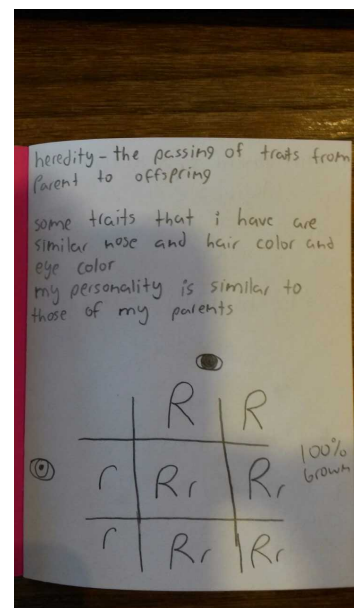 heredity - the passing of traits from
Parent to offspring
some traits that i have are
similar nose and hair color and
eye color
my personality is similar to
those of my parents
R R
r Rr Rr 100%
brown
r Rr Rr